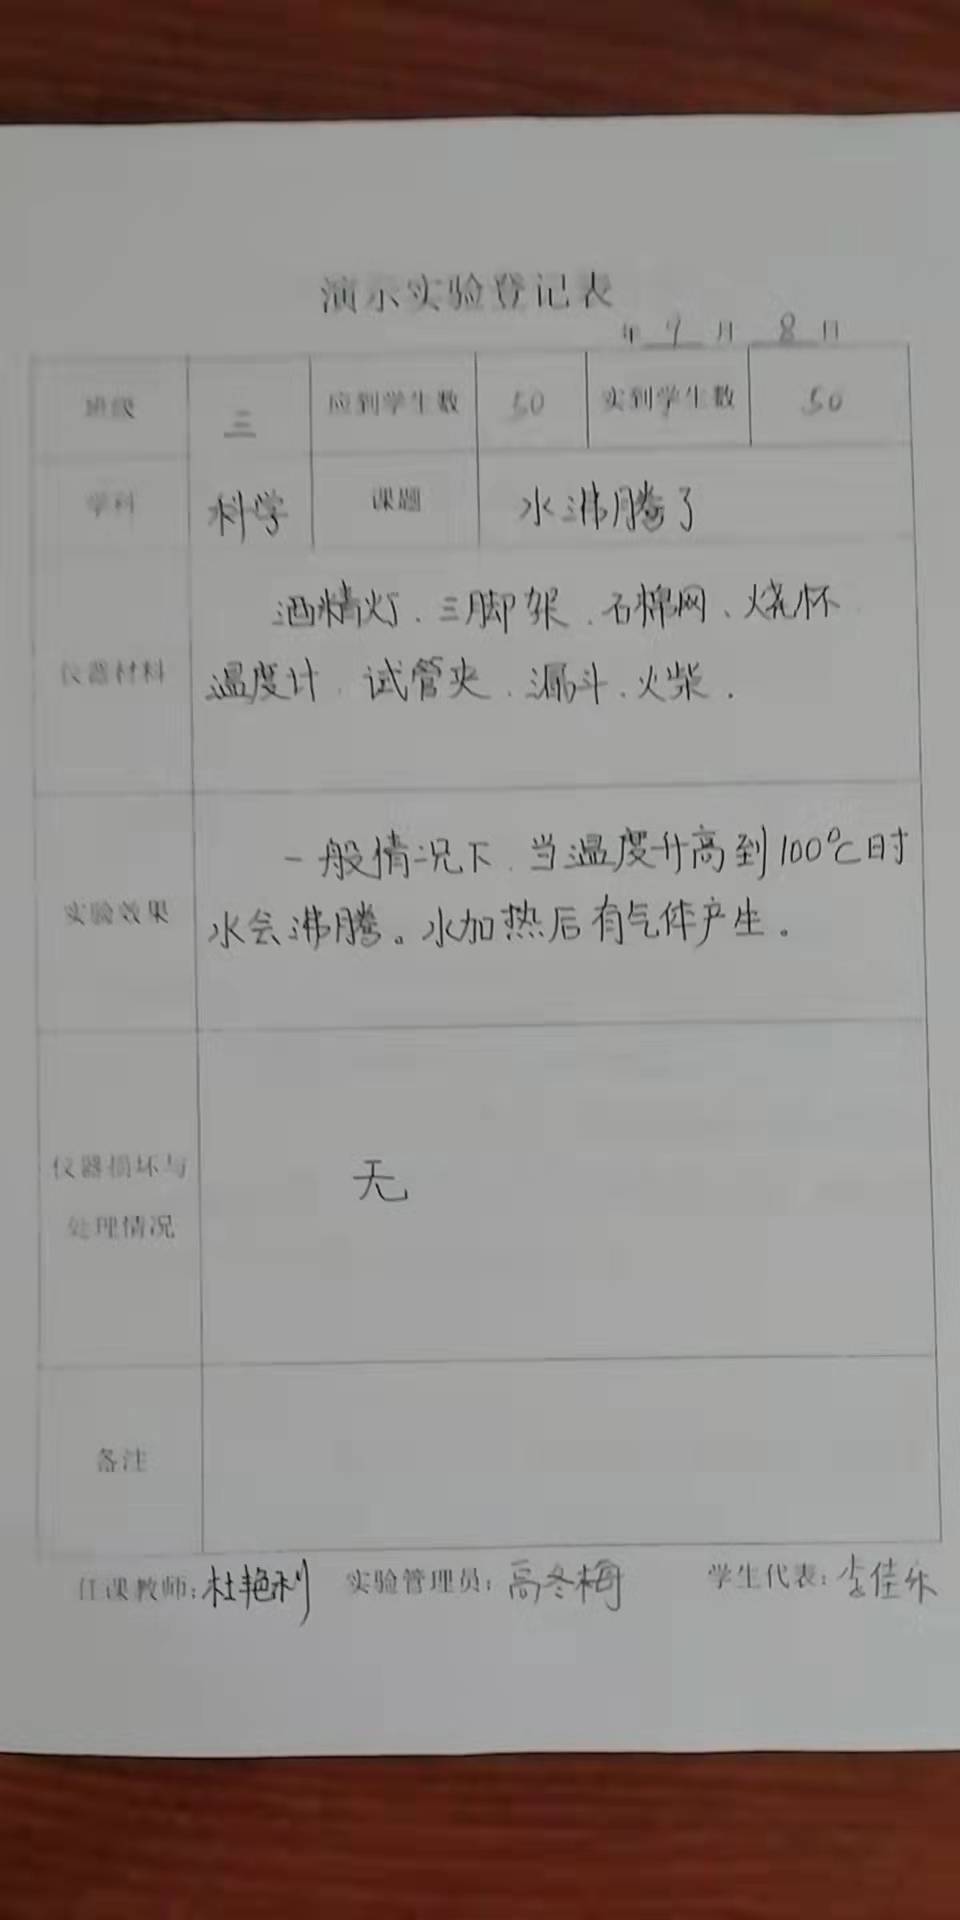 演示实验登记表
年 9 月 8 日
班级 三 应到学生数 50 实到学生数 50
学科 科学 课题 水沸腾了
仪器材料 酒精灯、三脚架、石棉网、烧杯
温度计、试管夹、漏斗、火柴.
实验效果 一般情况下、当温度升高到100℃时
水会沸腾。水加热后有气体产生。
仪器损坏与
处理情况 无
备注
任课教师:杜艳利 实验管理员:高冬梅 学生代表:李佳乐